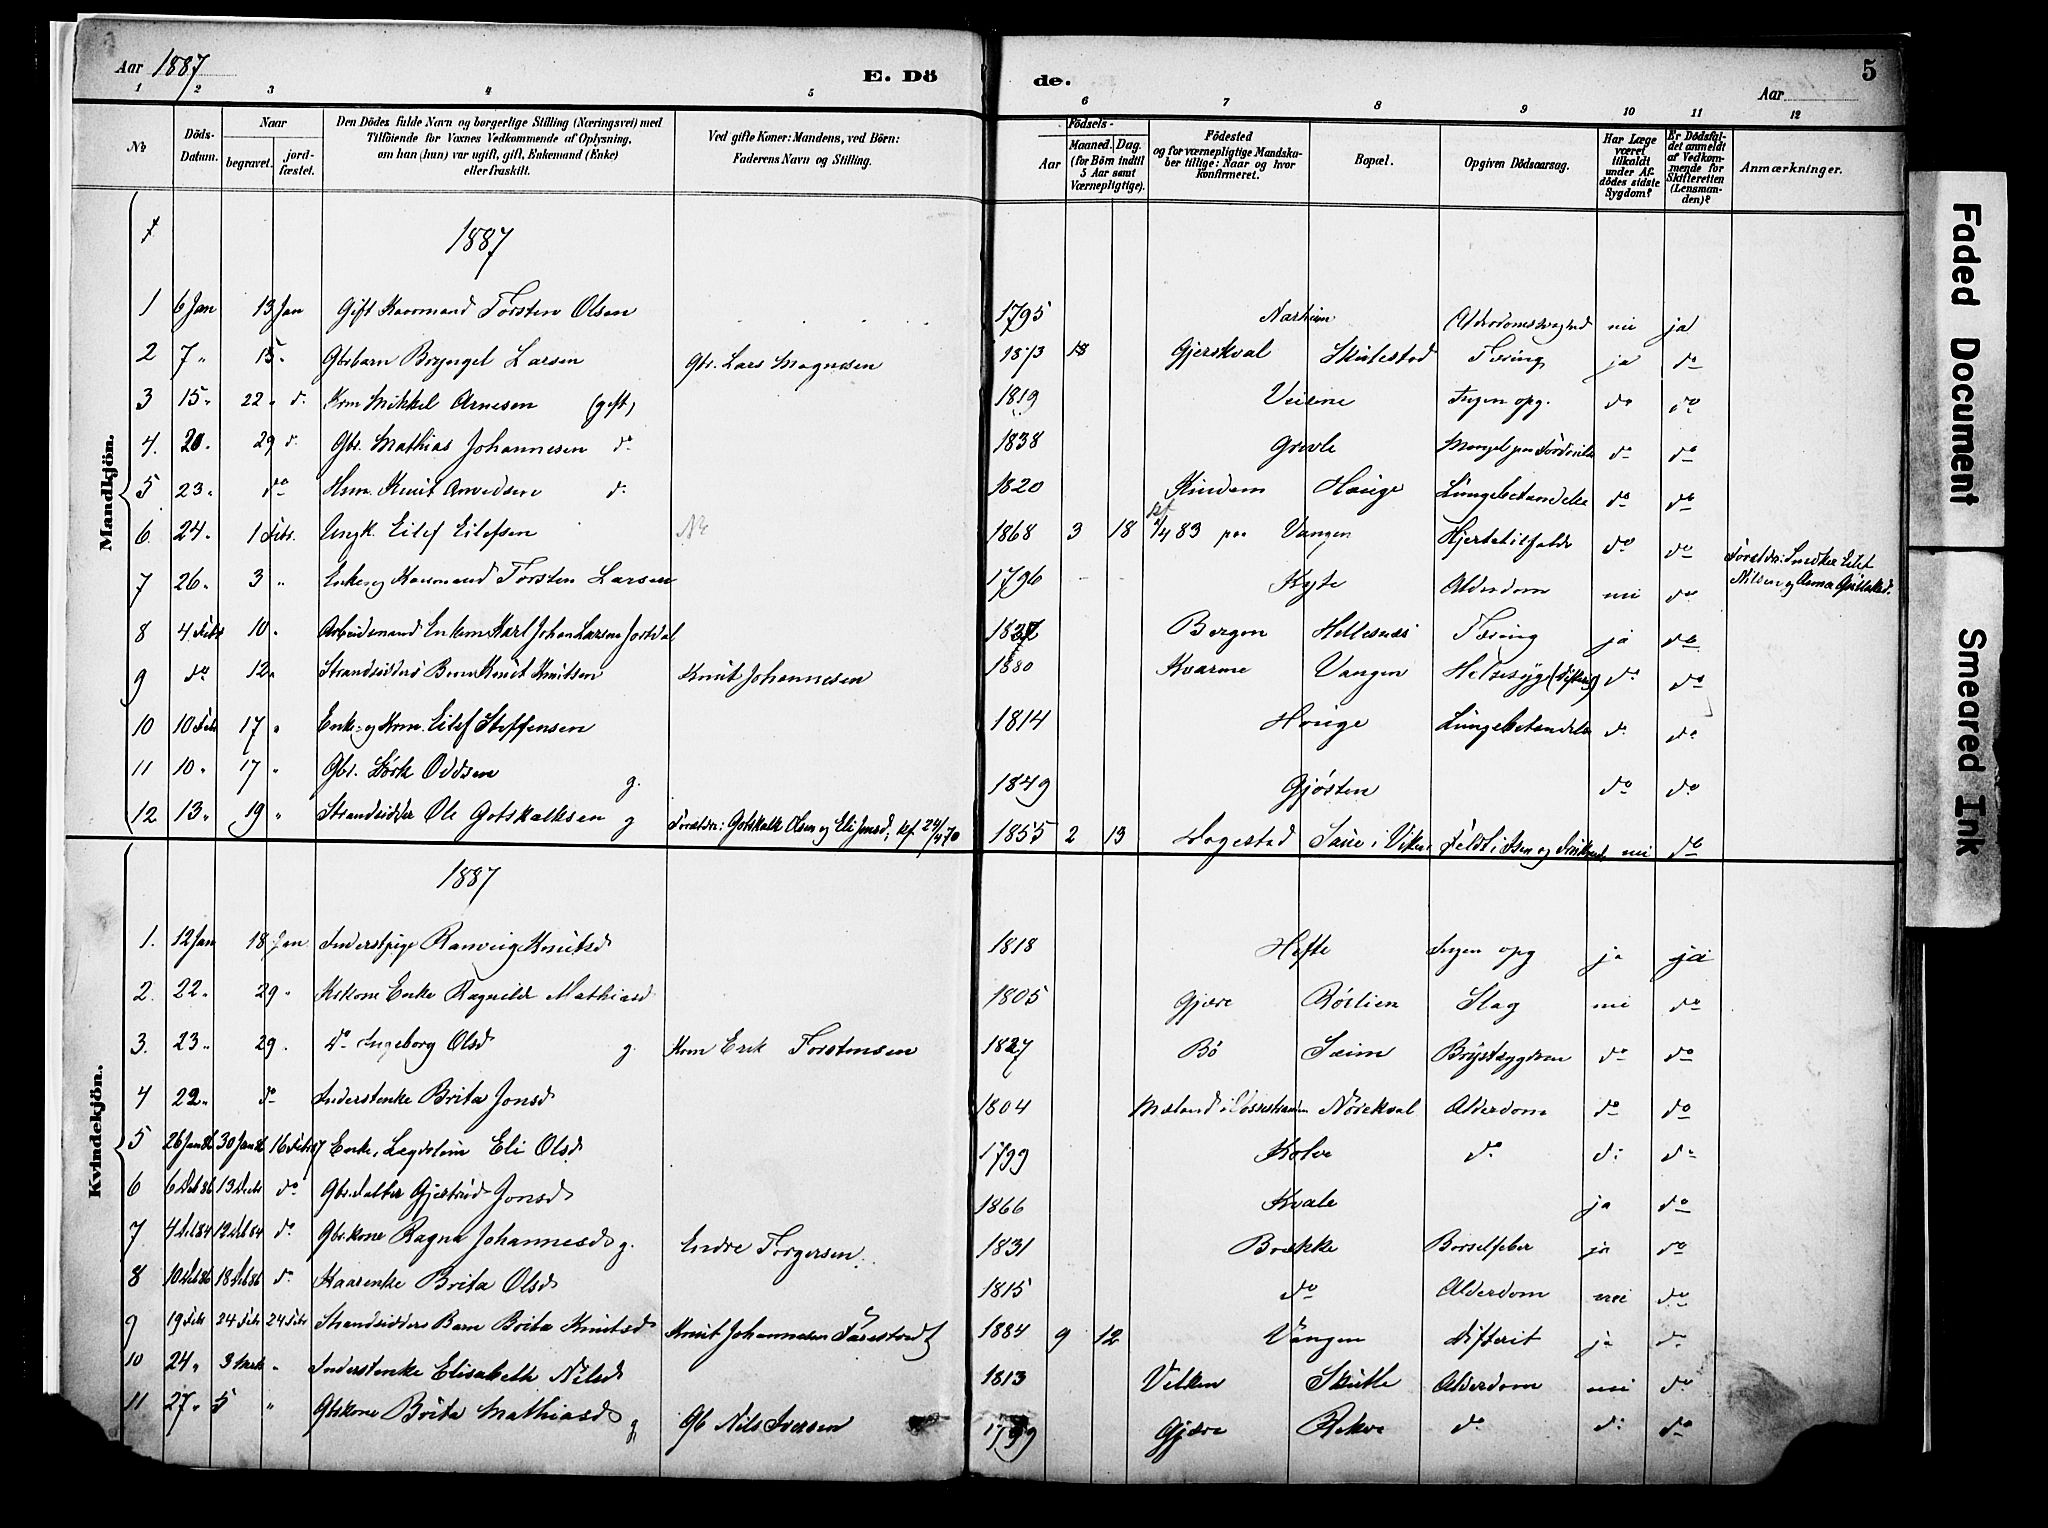 Aar 1887
E. Dö
de.
5
Aar
1 2 3 4 5 6 7 8 9 10 11 12
No
Döds-Datum.
Naar
begravet.
jord-fæstet.
Den Dödes fulde Navn og borgerlige Stilling (Næringsvei) med
Tilföiende for Voxnes Vedkommende af Oplysning,
om han (hun) var ugift, gift, Enkemand (Enke)
eller fraskilt.
Ved gifte Koner: Mandens, ved Börn:
Faderens Navn og Stilling.
Födsels-
Aar
Maaned. Dag.
(for Börn indtil
5 Aar samt
Værnepligtige).
Födested
og for værnepligtige Mandska-
ber tillige: Naar og hvor
Konfirmeret.
Bopæl.
Opgiven Dödsaarsag.
Har Læge
været
tilkaldt
under Af-
dödes sidste
Sygdom?
Er Dödsfal-
det anmeldt
af Vedkom-
mende for
Skifteretten
(Lensman-
den)?
Anmærkninger.
Mandkjön.
1887
1 6 Jan 13 Jan Gift Kaarmand Torsten Olsen 1795 Narheim nei ja
2 7 " 15 " Gbrbarn Brynjel Larsen Gbr. Lars Magnesen 1873 18 Gjerskval Skutestad Tæring ja do
3 15 " 22 " d. Krm Mikkel Arnesen (gift) 1819 Veisene Ingen opg. do do
4. 20. 29 d. Gbr. Mathias Johannesen do 1838 Grovle Mangel paa do do
5 23 " do Hsm. Knut Amedsen d. 1820 Kindem Houge Lungebetendelse do do
6. 24. 1 Febr. Ungk. Eilef Eilefsen 1868 3 18 83 paa Vangen Hjertetilfælde do do Foreldre: Snedker Eilef
Nilsen og Anna
7 26 " 3 " Enke og Kaarmand Torsten Larsen 1796 Kyte Alderdom nei do
8 4 Febr 10 " Arbeidsmand Enkem Karl Johan Larsen Jordal Bergen Hellesnæs Tæring ja do
9 do 12 " Strandsidders Barn Knut Knutsen Knut Johannesen 1880 Kvarme Vangen Halssyge do do
10 10 Feb 17 " Enke- og Krm. Eilef Steffensen 1814 Houge Lungebetendelse d. do
11 10 " 17 " Gbr. Lørk Oddsen g. 1849 Gjøsten do do
12 13 " 19 " Strandsidder Ole Gotskalksen g Forældre: Gotskalk Olsen og Eli Jonsd. kf. 24/4 70 1855 2 13 Hogestad Saue i Viken nei do
Kvindekjön.
1887
1. 12 Jan 18 Jan Inderstpige Ranveig Knutsd 1818 Hefte Ingen opg ja ja
2. 22 " 29 " Krkone Enke Ragnilde Mathiasd 1805 Gjære Røslien Slag nei do
3. 23 " 29. do Ingeborg Olsd g. Krm Erik Torstensen 1827 Bø Sæim Brystsygdom do do
4 22 " do Inderstenke Brita Jonsd 1804 Mæland i Vossestranden Nørekval Alderdom do do
5 26 Jan 86 30 Jan 86 16 Febr 87 Enke, Lægdslem Eli Olsd 1799 Kolve do d: do
6 13 Debr do Gbrdatter Gjertrud Jonsd 1866 Kvale ja do
7 d. Gbrkone Ragna Johannesd g. Endre Torgersen 1831 Brække Barselfeber ja do
8 d. Kaarenke Brita Olsd 1815 do Alderdom nei do
9 19 Feb 24 Feb 24 Feb Strandsidders Barn Brita Knutsd Knut Johannesen 1884 9 12 Vangen difterit ja d.
10 24 " 3 Mrts " Inderstenke Elisabeth Nilsd 1813 Velken Skutle Alderdom nei do
11 27 " 5 " Gbkone Brita Mathiasd g Gb Nils Iversen 1799 Gjære Rekve do d: do
Faded Document
Smeared Ink